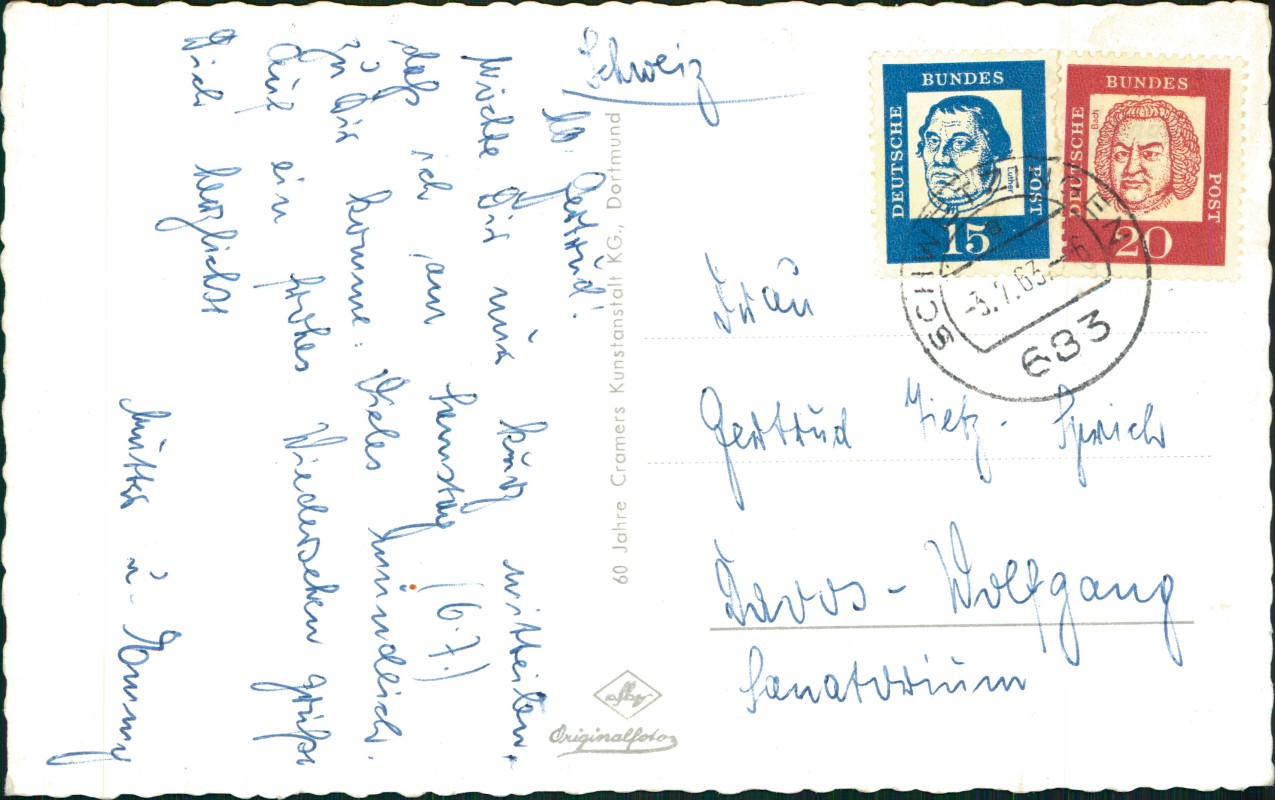 Schweiz
Lb. Gertrud!
Möchte Dir nur kurz mitteilen,
daß ich am Samstag (6.7.)
zu Dir komme. Vieles mündlich.
Auf ein frohes Wiedersehen grüßt
Dich herzlichst
Mutter u. Emmy
60 Jahre Cramers Kunstanstalt KG., Dortmund
Originalfoto
BUNDES
DEUTSCHE
POST
Luther
15
BUNDES
DEUTSCHE
POST
Bach
20
-3.7.63.-6
683
Frau
Gertrud
Davos - Wolfgang
Sanatorium